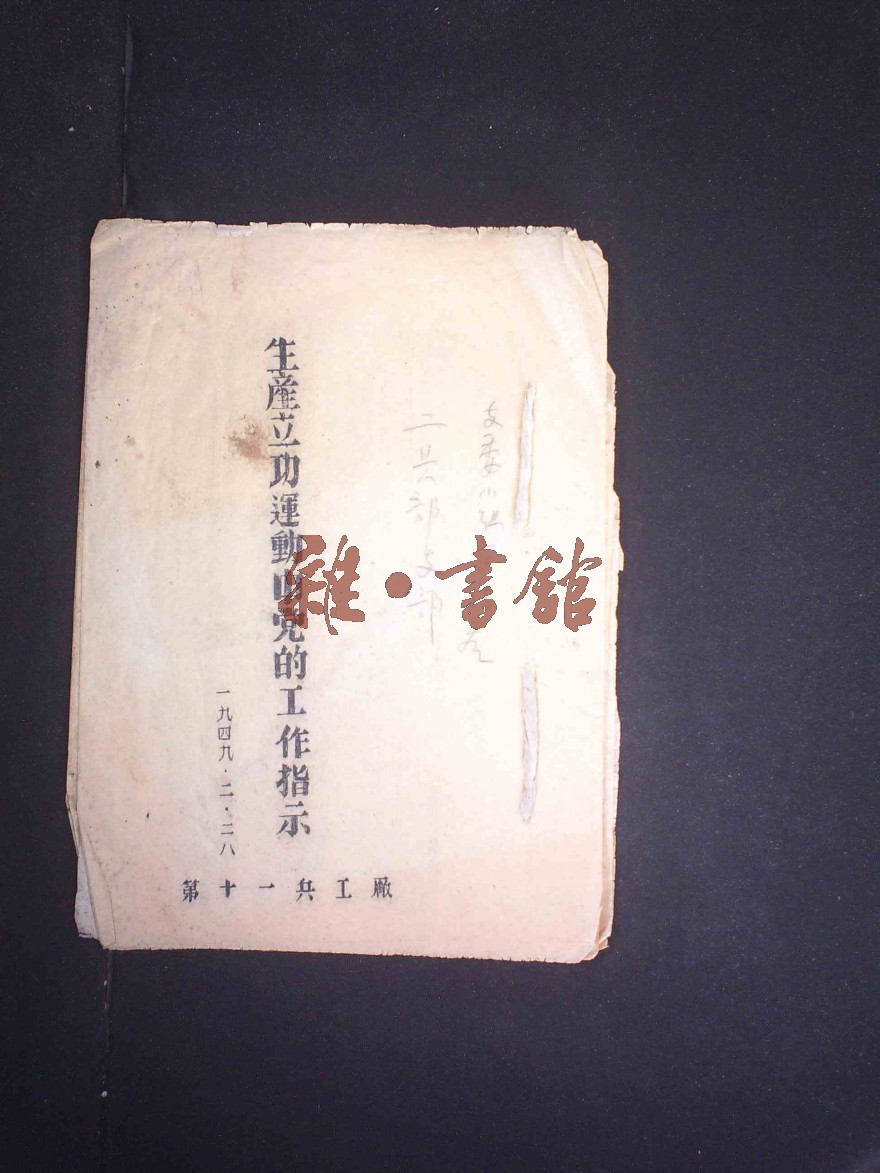 支委小组
部支部
生産立功運動中党的工作指示
一九四九·二·二八
第十一兵工厰
雜·書館